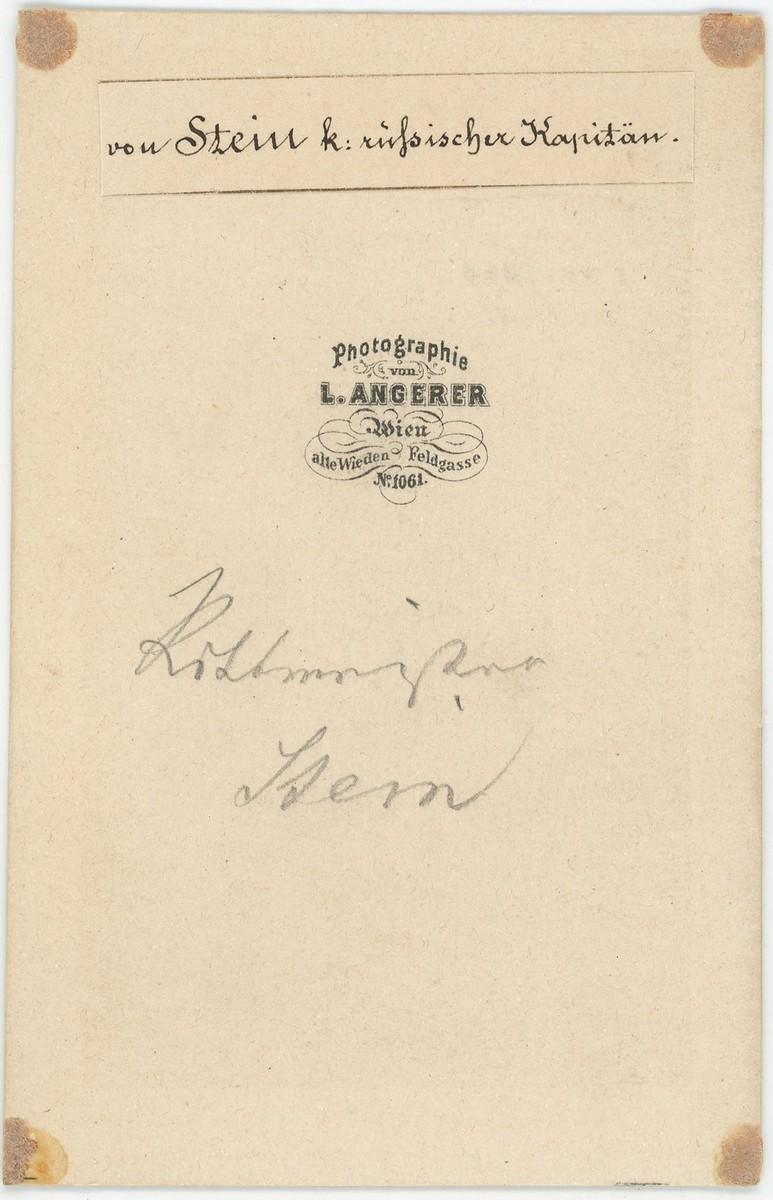 von Stein k: rußsischer Kapitän.
Photographie
von
L. ANGERER
Wien
alte Wieden Feldgasse
No. 1061.
Rittmeister
Stein